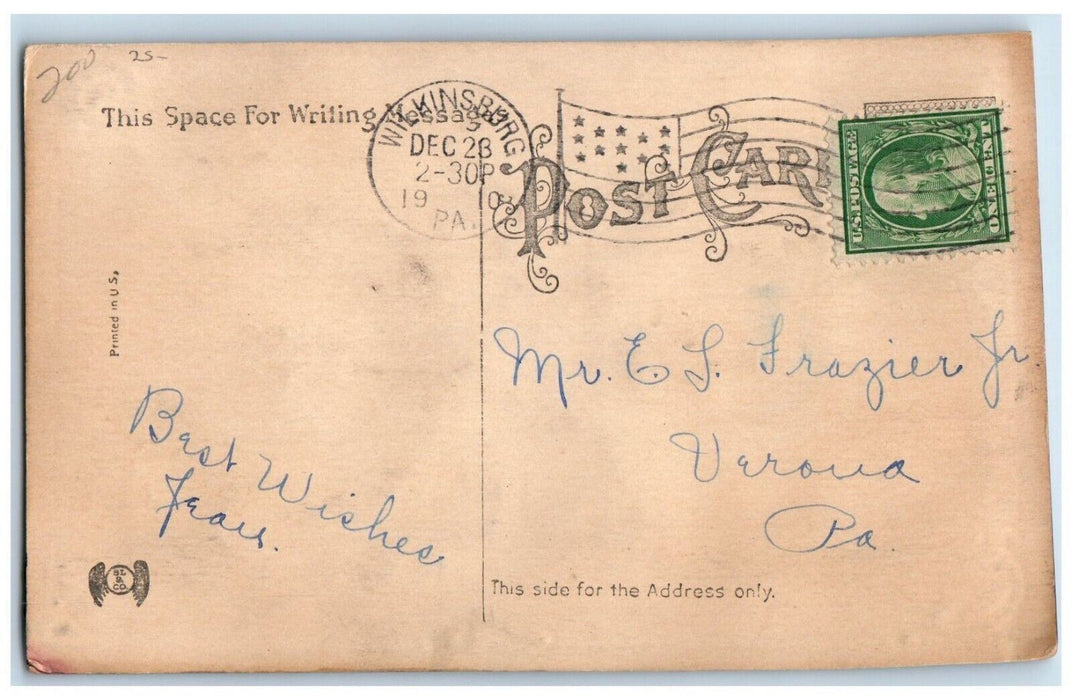 200 25-
This Space For Writing Message
WILKINSBURG
DEC 28
2-30P
19 10
PA.
POST CARD
U.S. POSTAGE
ONE CENT
Printed in U.S.
Mr. E. S. Frazier Jr.
Verona
Pa.
Best Wishes
SL
&
CO
This side for the Address only.